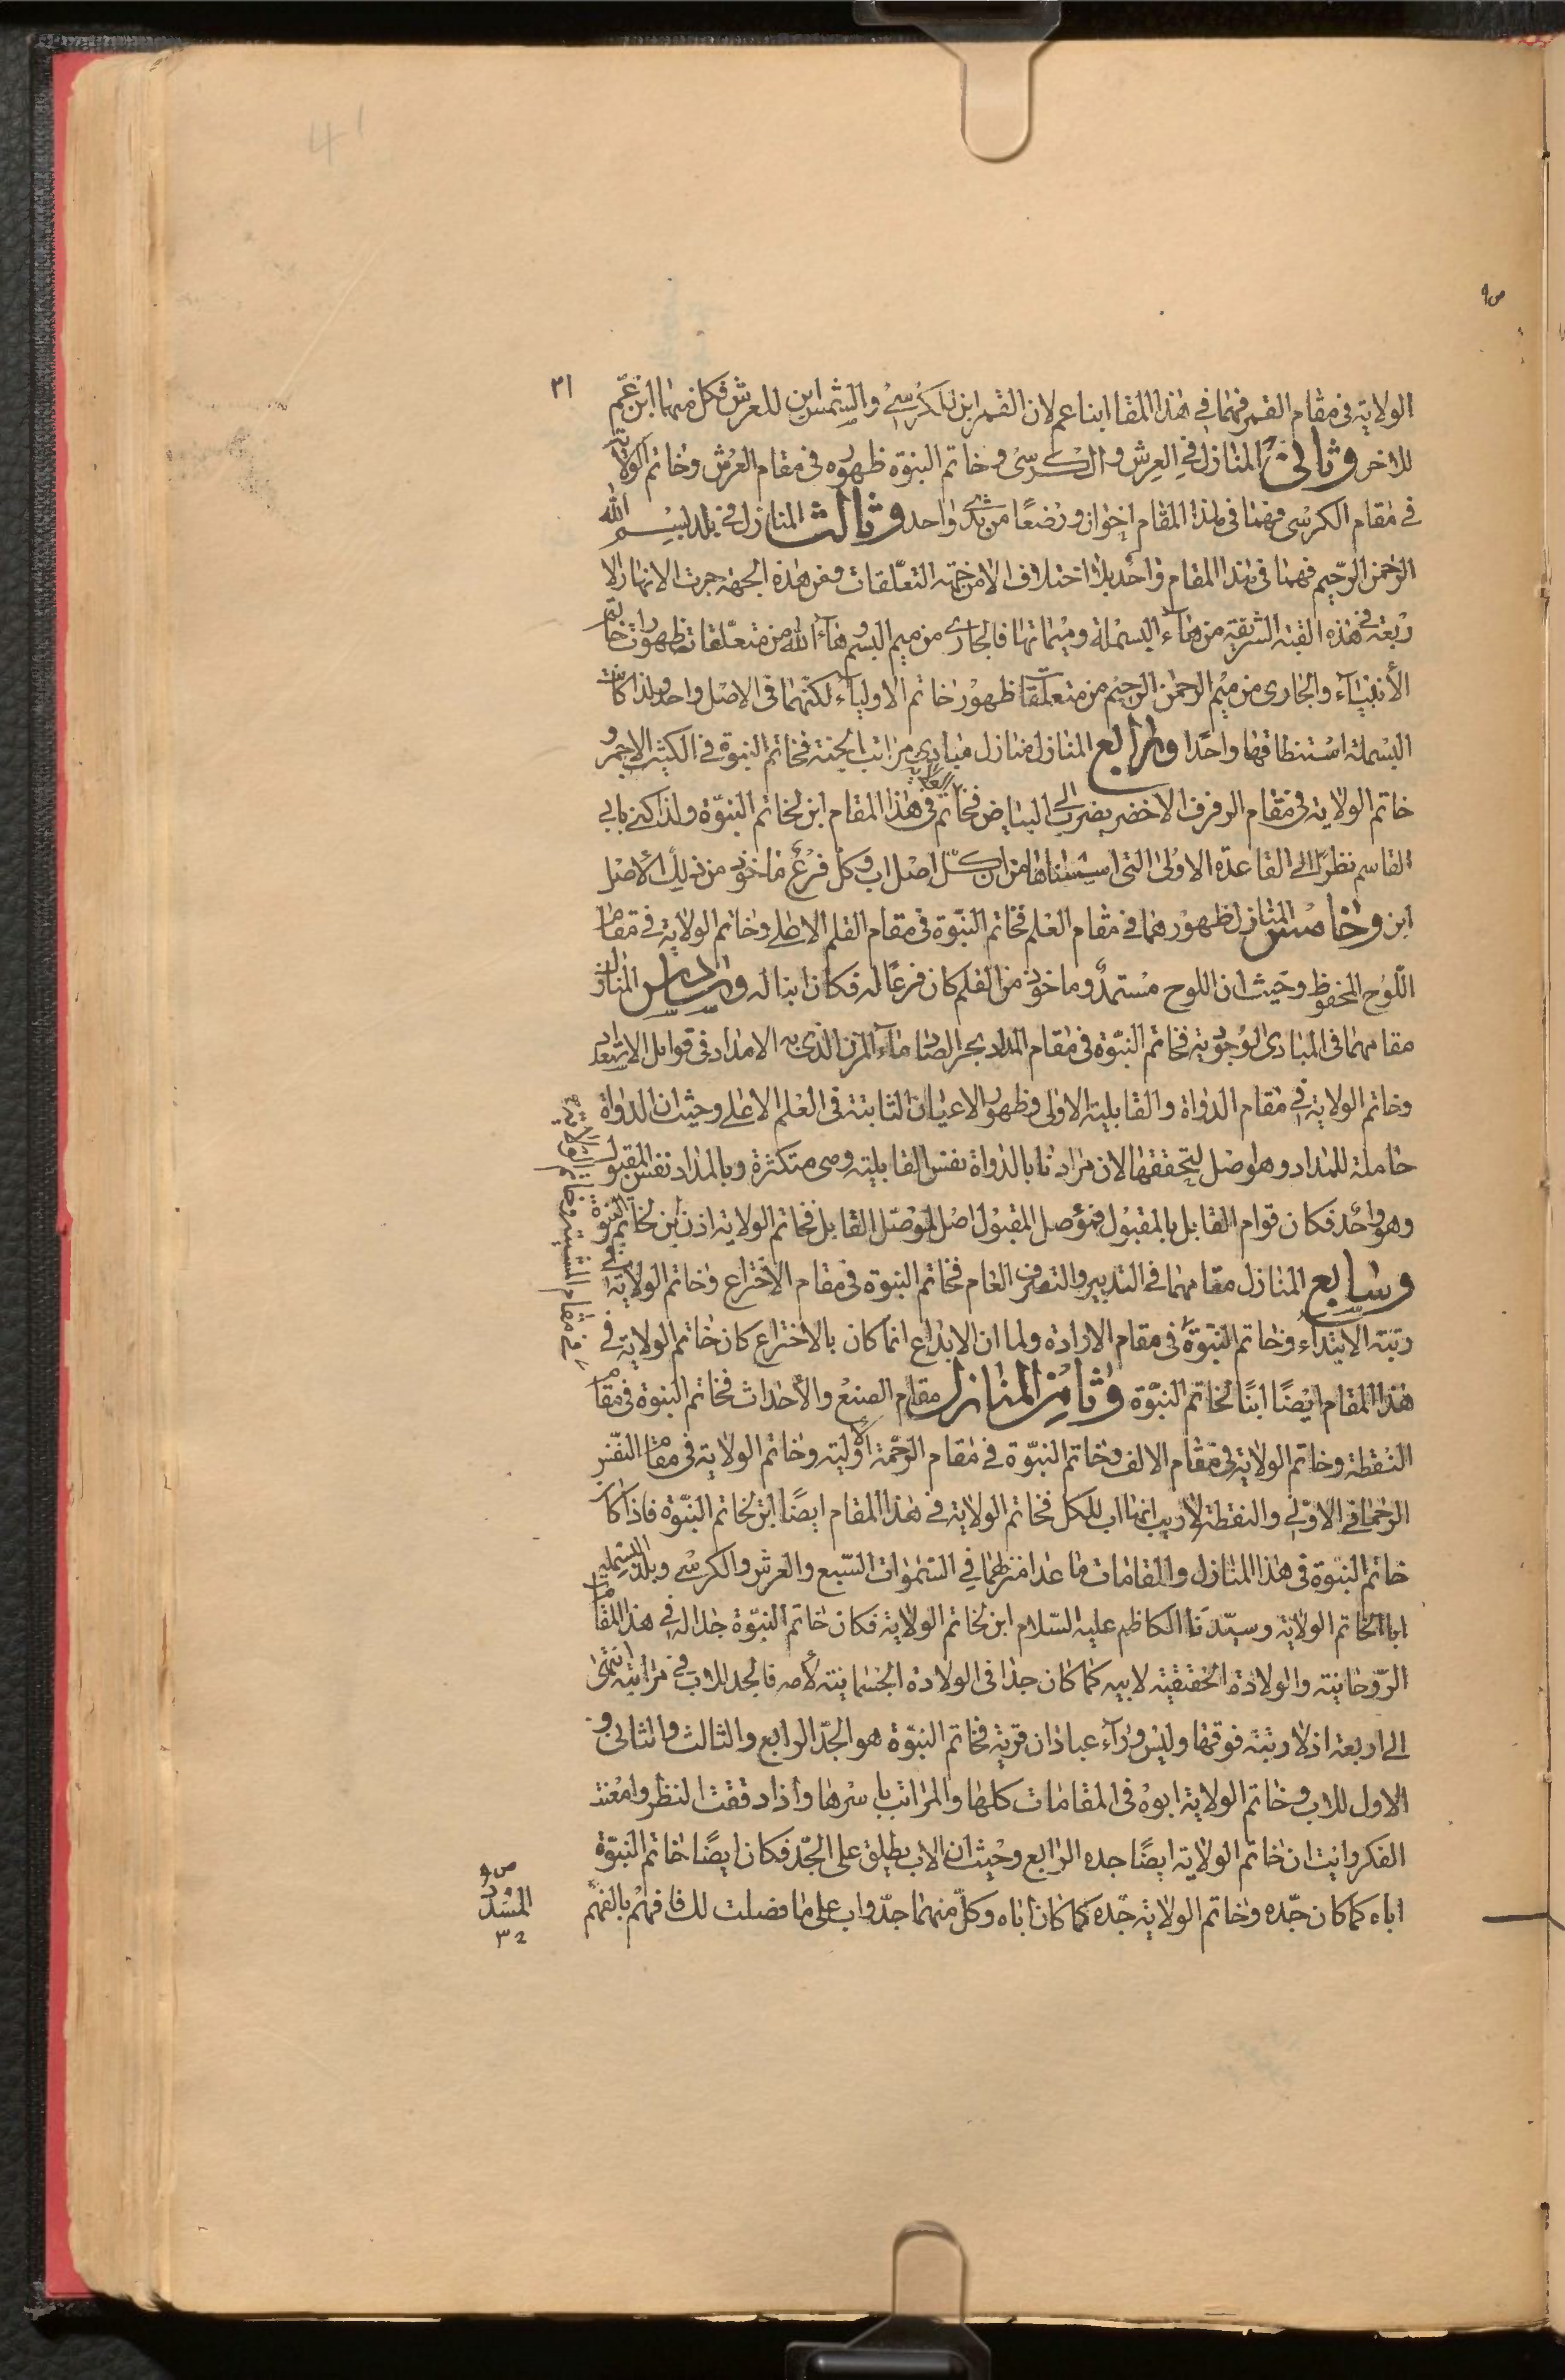 ٣١
الولاية فى مقام القمر فهما فى هذا المقا ابنا عم لان القمر ابن للكرسى والشمس ابن للعرش فكل منهما ابن عم
للاخر وثانى المنازل فى العرش والكرسى وخاتم النبوة ظهوره فى مقام العرش وخاتم الولاية
فى مقام الكرسى فهما فى هذا المقام اخوان ورضعا من ثدى واحد وثالث المنازل فى بلد بسم الله
الرحمن الرحيم فهما فى هذا المقام واحد بلا اختلاف الا من جهة التعلقات ومن هذه الجهة جرت الانهار الا
ربعة فى هذه القبة الشريفة من هاء البسملة وميماتها فالجارى من ميم البسم وهاء الله من متعلقات ظهورات خاتم
الأنبياء والجارى من ميم الرحمن الرحيم من متعلقا ظهور خاتم الاولياء لكنهما فى الاصل واحد ولذا كانت
البسملة استنطاقها واحدا ورابع المنازل منازل مبادى مراتب الجنة فخاتم النبوة فى الكثيب الاحمر و
خاتم الولاية فى مقام الرفرف الاخضر يضرب الى البياض فخاتم الولاية فى هذا المقام ابن لخاتم النبوة ولذا كنى بابى
القاسم نظرا الى القاعدة الاولى التى اسسناها من ان كل اصل اب وكل فرع ماخوذ من ذلك الأصل
ابن وخامس المنازل ظهورهما فى مقام العلم فخاتم النبوة فى مقام القلم الاعلى وخاتم الولاية فى مقام
اللوح المحفوظ وحيث ان اللوح مستمد وماخوذ من القلم كان فرعا له فكان ابنا له وسادس المنازل
مقامهما فى المبادى الوجوبية فخاتم النبوة فى مقام المداد بحر الصاد ماء المزن الذى به الامداد فى قوابل الاستعداد
وخاتم الولاية فى مقام الدواة والقابلية الاولى وظهور الاعيان الثابتة فى العلم الاعلى وحيث ان الدواة
حاملة للمداد وهو اصل لتحققها لان مرادنا بالدواة نفس القابلية وهى متكثرة وبالمداد نفس المقبول
وهو واحد فكان قوام القابل بالمقبول فموصل المقبول اصل لموصل القابل فخاتم الولاية اذن ابن لخاتم النبوة
وسابع المنازل مقامهما فى التدبير والتصرف العام فخاتم النبوة فى مقام الاختراع وخاتم الولاية فى
رتبة الابتداء وخاتم النبوة فى مقام الارادة ولما ان الابداع انما كان بالاختراع كان خاتم الولاية فى
هذا المقام ايضا ابنا لخاتم النبوة وثامن المنازل مقام الصنع والأحداث فخاتم النبوة فى مقام
النقطة وخاتم الولاية فى مقام الالف وخاتم النبوة فى مقام الرحمة الاولية وخاتم الولاية فى مقام النفس
الرحمانى الاولى والنقطة لا ريب انها اب للكل فخاتم الولاية فى هذا المقام ايضا ابن لخاتم النبوة فاذا كان
خاتم النبوة فى هذا المنازل والمقامات ما عدا منزلهما فى السموات السبع والعرش والكرسى وبلد البسملة
ابا لخاتم الولاية وسيدنا الكاظم عليه السلام ابن لخاتم الولاية فكان خاتم النبوة جدا له فى هذا المقام
الروحانية والولادة الحقيقية لابيه كما كان جدا فى الولادة الجسمانية لأمه فالجد للاب فى مراتبه انتهى
الى اربعة اذ لا رتبة فوقها وليس وراء عبادان قرية فخاتم النبوة هو الجد الرابع والثالث والثانى و
الاول للاب وخاتم الولاية ابوه فى المقامات كلها والمراتب باسرها واذا دققت النظر وامعنت
الفكر رايت ان خاتم الولاية ايضا جده الرابع وحيث ان الاب يطلق على الجد فكان ايضا خاتم النبوة
اباه كما كان جده وخاتم الولاية جده كما كان اباه وكل منهما جد واب على ما فصلت لك فافهم بالفهم
المسدد
٣٢